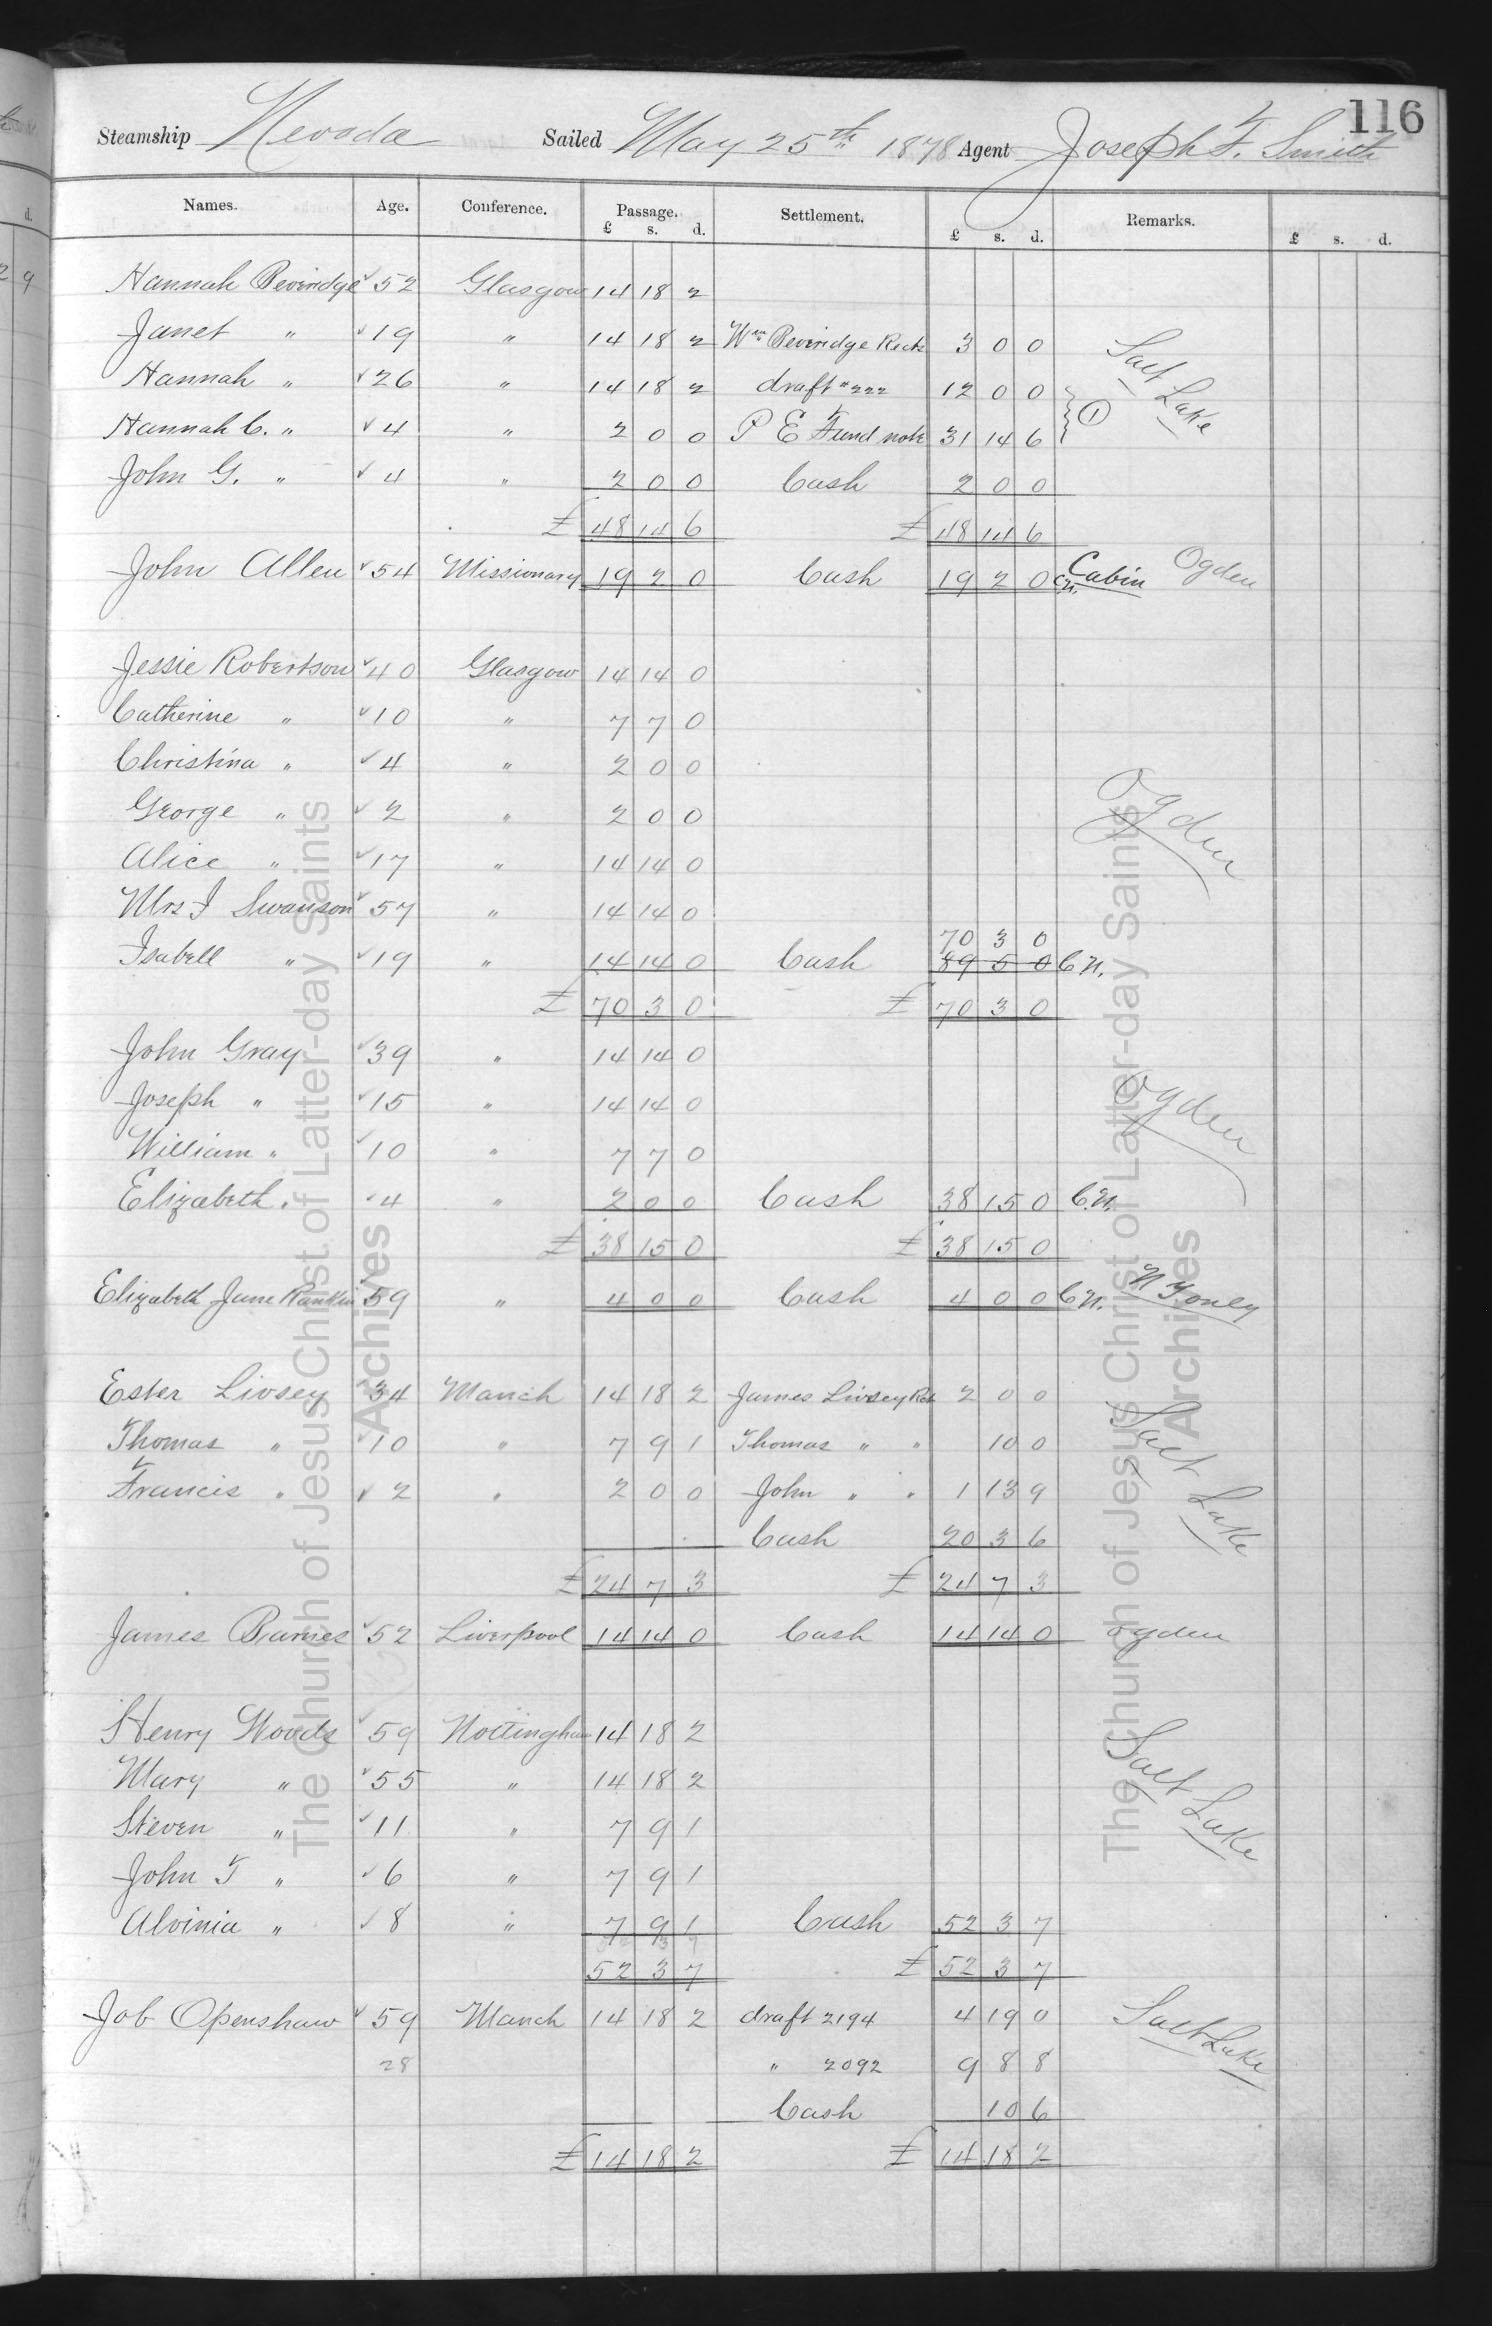 116
Steamship Nevada Sailed May 25th 1878 Agent Joseph F. Smith
Names. Age. Conference. Passage. Settlement. Remarks.
£ s. d. £ s. d. £ s. d.
Hannah Beveridge 52 Glasgow 14 18 2
Janet " 19 " 14 18 2 Wm Beveridge Rects 3 0 0
Hannah " 26 " 14 18 2 draft # 222 12 0 0 Salt Lake
Hannah C. " 4 " 2 0 0 P E Fund note 31 14 6 (1)
John G. " 4 " 2 0 0 Cash 2 0 0
£ 48 14 6 £ 48 14 6
John Allen 54 Missionary 19 2 0 Cash 19 2 0 Cn. Cabin Ogden
Jessie Robertson 40 Glasgow 14 14 0
Catherine " 10 " 7 7 0
Christina " 4 " 2 0 0
George " 2 " 2 0 0 Ogden
Alice " 17 " 14 14 0
Mrs I Swanson 57 " 14 14 0
70 3 0
Isabell " 19 " 14 14 0 Cash 89 5 0 Cn.
£ 70 3 0 £ 70 3 0
John Gray 39 " 14 14 0
Joseph " 15 " 14 14 0 Ogden
William " 10 " 7 7 0
Elizabeth " 4 " 2 0 0 Cash 38 15 0 Cn.
£ 38 15 0 £ 38 15 0
Elizabeth Jane Rankin 59 " 4 0 0 Cash 4 0 0 Cn. N Y only
Ester Livsey 34 Manch 14 18 2 James Livsey Rct 2 0 0
Thomas " 10 " 7 9 1 Thomas " " 10 0 Salt Lake
Francis " 2 " 2 0 0 John " " 1 13 9
Cash 20 3 6
£ 24 7 3 £ 24 7 3
James Barnes 52 Liverpool 14 14 0 Cash 14 14 0 Ogden
Henry Woods 59 Nottingham 14 18 2
Mary " 55 " 14 18 2 Salt Lake
Steven " 11 " 7 9 1
John T " 6 " 7 9 1
Alvinia " 8 " 7 9 1 Cash 52 3 7
52 3 7 £ 52 3 7
Job Openshaw 59 Manch 14 18 2 draft 2194 4 19 0 Salt Lake
28 " 2092 9 8 8
Cash 10 6
£ 14 18 2 £ 14 18 2
The Church of Jesus Christ of Latter-day Saints
Archives
The Church of Jesus Christ of Latter-day Saints
Archives